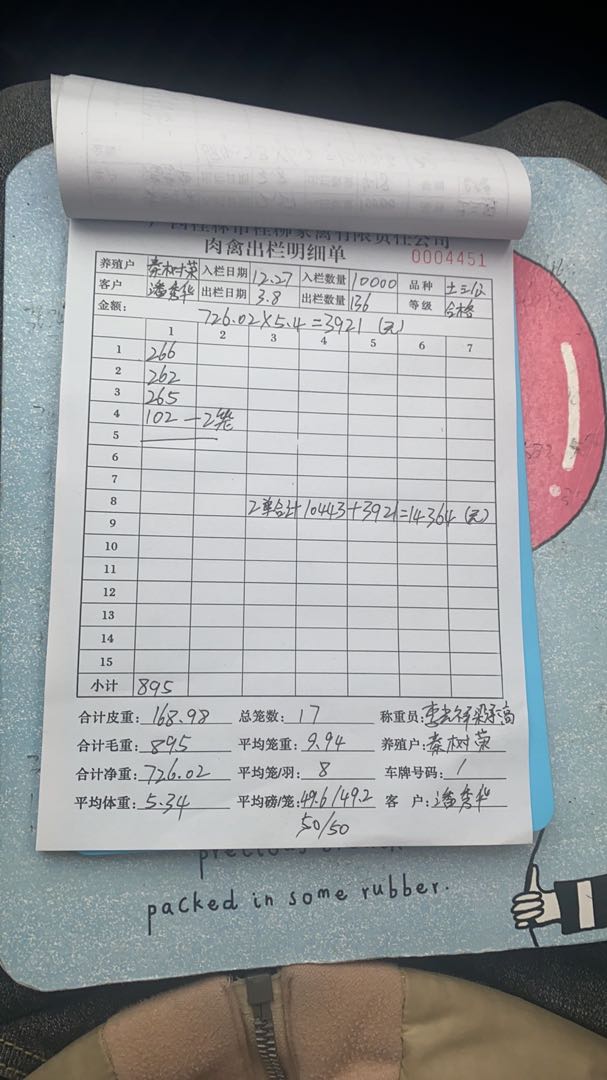 广西桂林市桂柳家禽有限责任公司
肉禽出栏明细单 0004451
养殖户 秦树荣 入栏日期 12.27 入栏数量 10000 品种 土三公
客户 潘秀华 出栏日期 3.8 出栏数量 136 等级 合格
金额: 726.02×5.4=3921(元)
1 2 3 4 5 6 7
1 266
2 262
3 265
4 102 — 2笼
5
6
7
8 2单合计10443+3921=14364(元)
9
10
11
12
13
14
15
小计 895
合计皮重: 168.98 总笼数: 17 称重员:
合计毛重: 895 平均笼重: 9.94 养殖户: 秦树荣
合计净重: 726.02 平均笼/羽: 8 车牌号码: /
平均体重: 5.34 平均磅/笼: 49.6/49.2 客 户: 潘秀华
50/50
packed in some rubber.